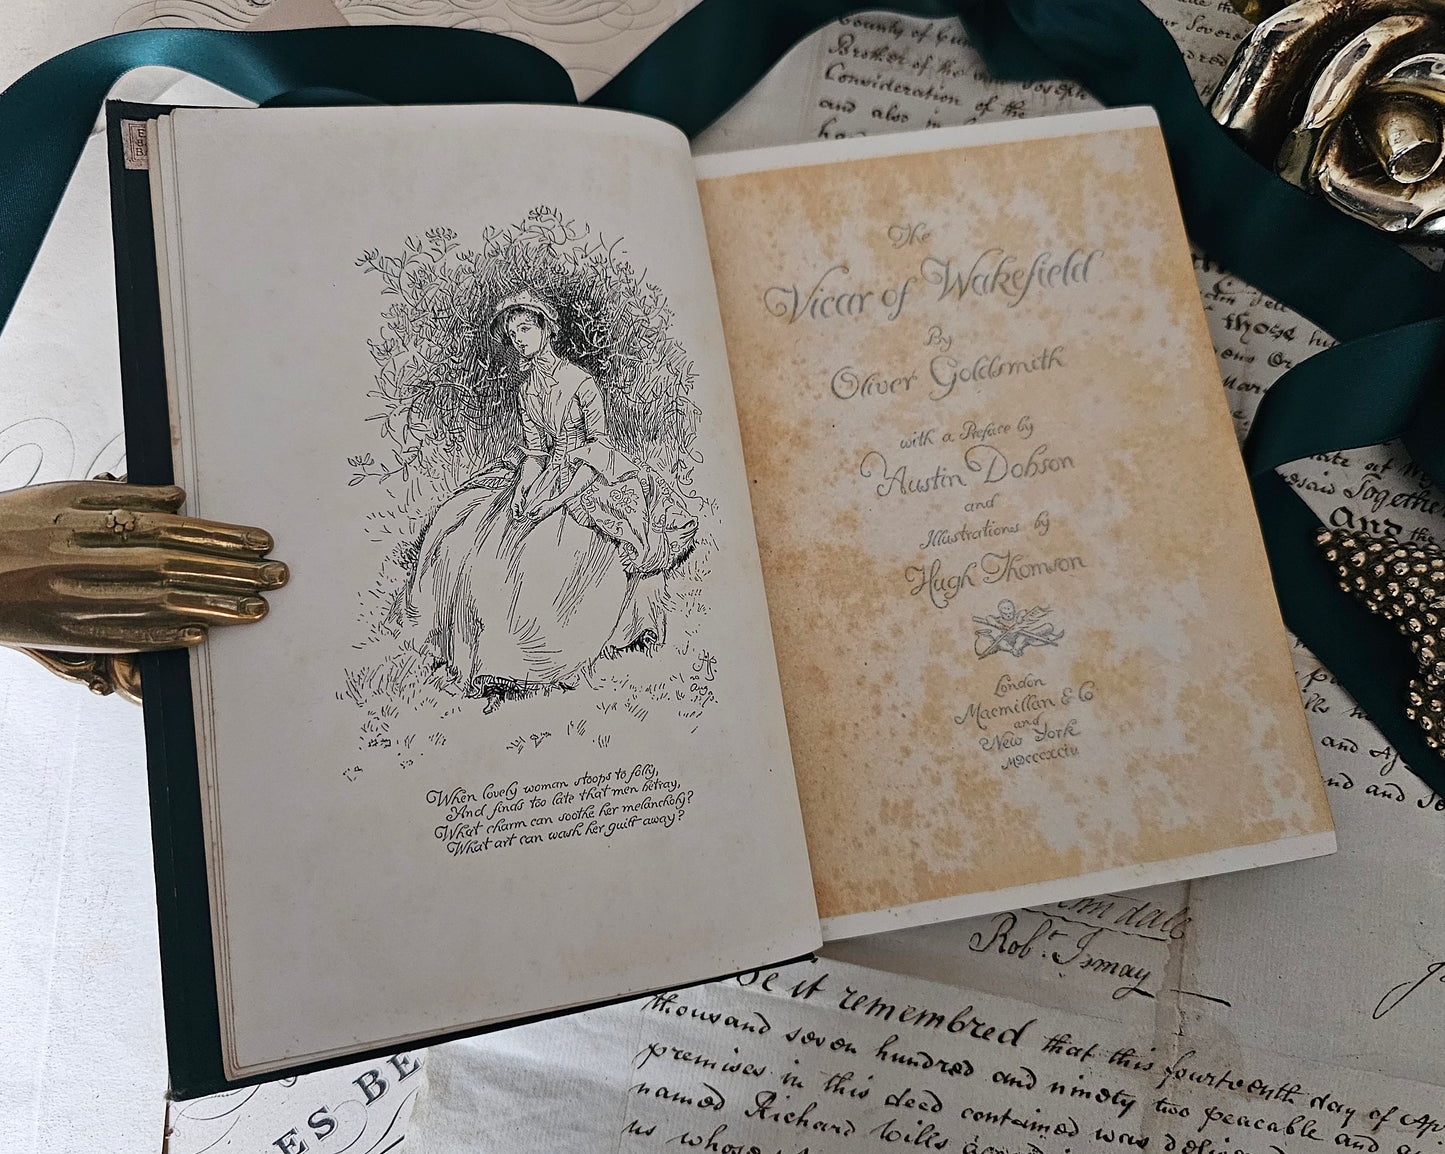 When lovely woman stoops to folly,
And finds too late that men betray,
What charm can soothe her melancholy?
What art can wash her guilt away?
The
Vicar of Wakefield
By
Oliver Goldsmith
with a Preface by
Austin Dobson
and
Illustrations by
Hugh Thomson
London
Macmillan & Co
and
New York
MDCCCXCIV
County of
Brother of the Joseph
Consideration of the
and also in
those his
Together
And the
and
and and
Robt. Ismay
Be it remembred that this fourteenth day of
thousand seven hundred and ninety two peacable and
premises in this deed contained was
named Richard Wills
us whose
ES BE